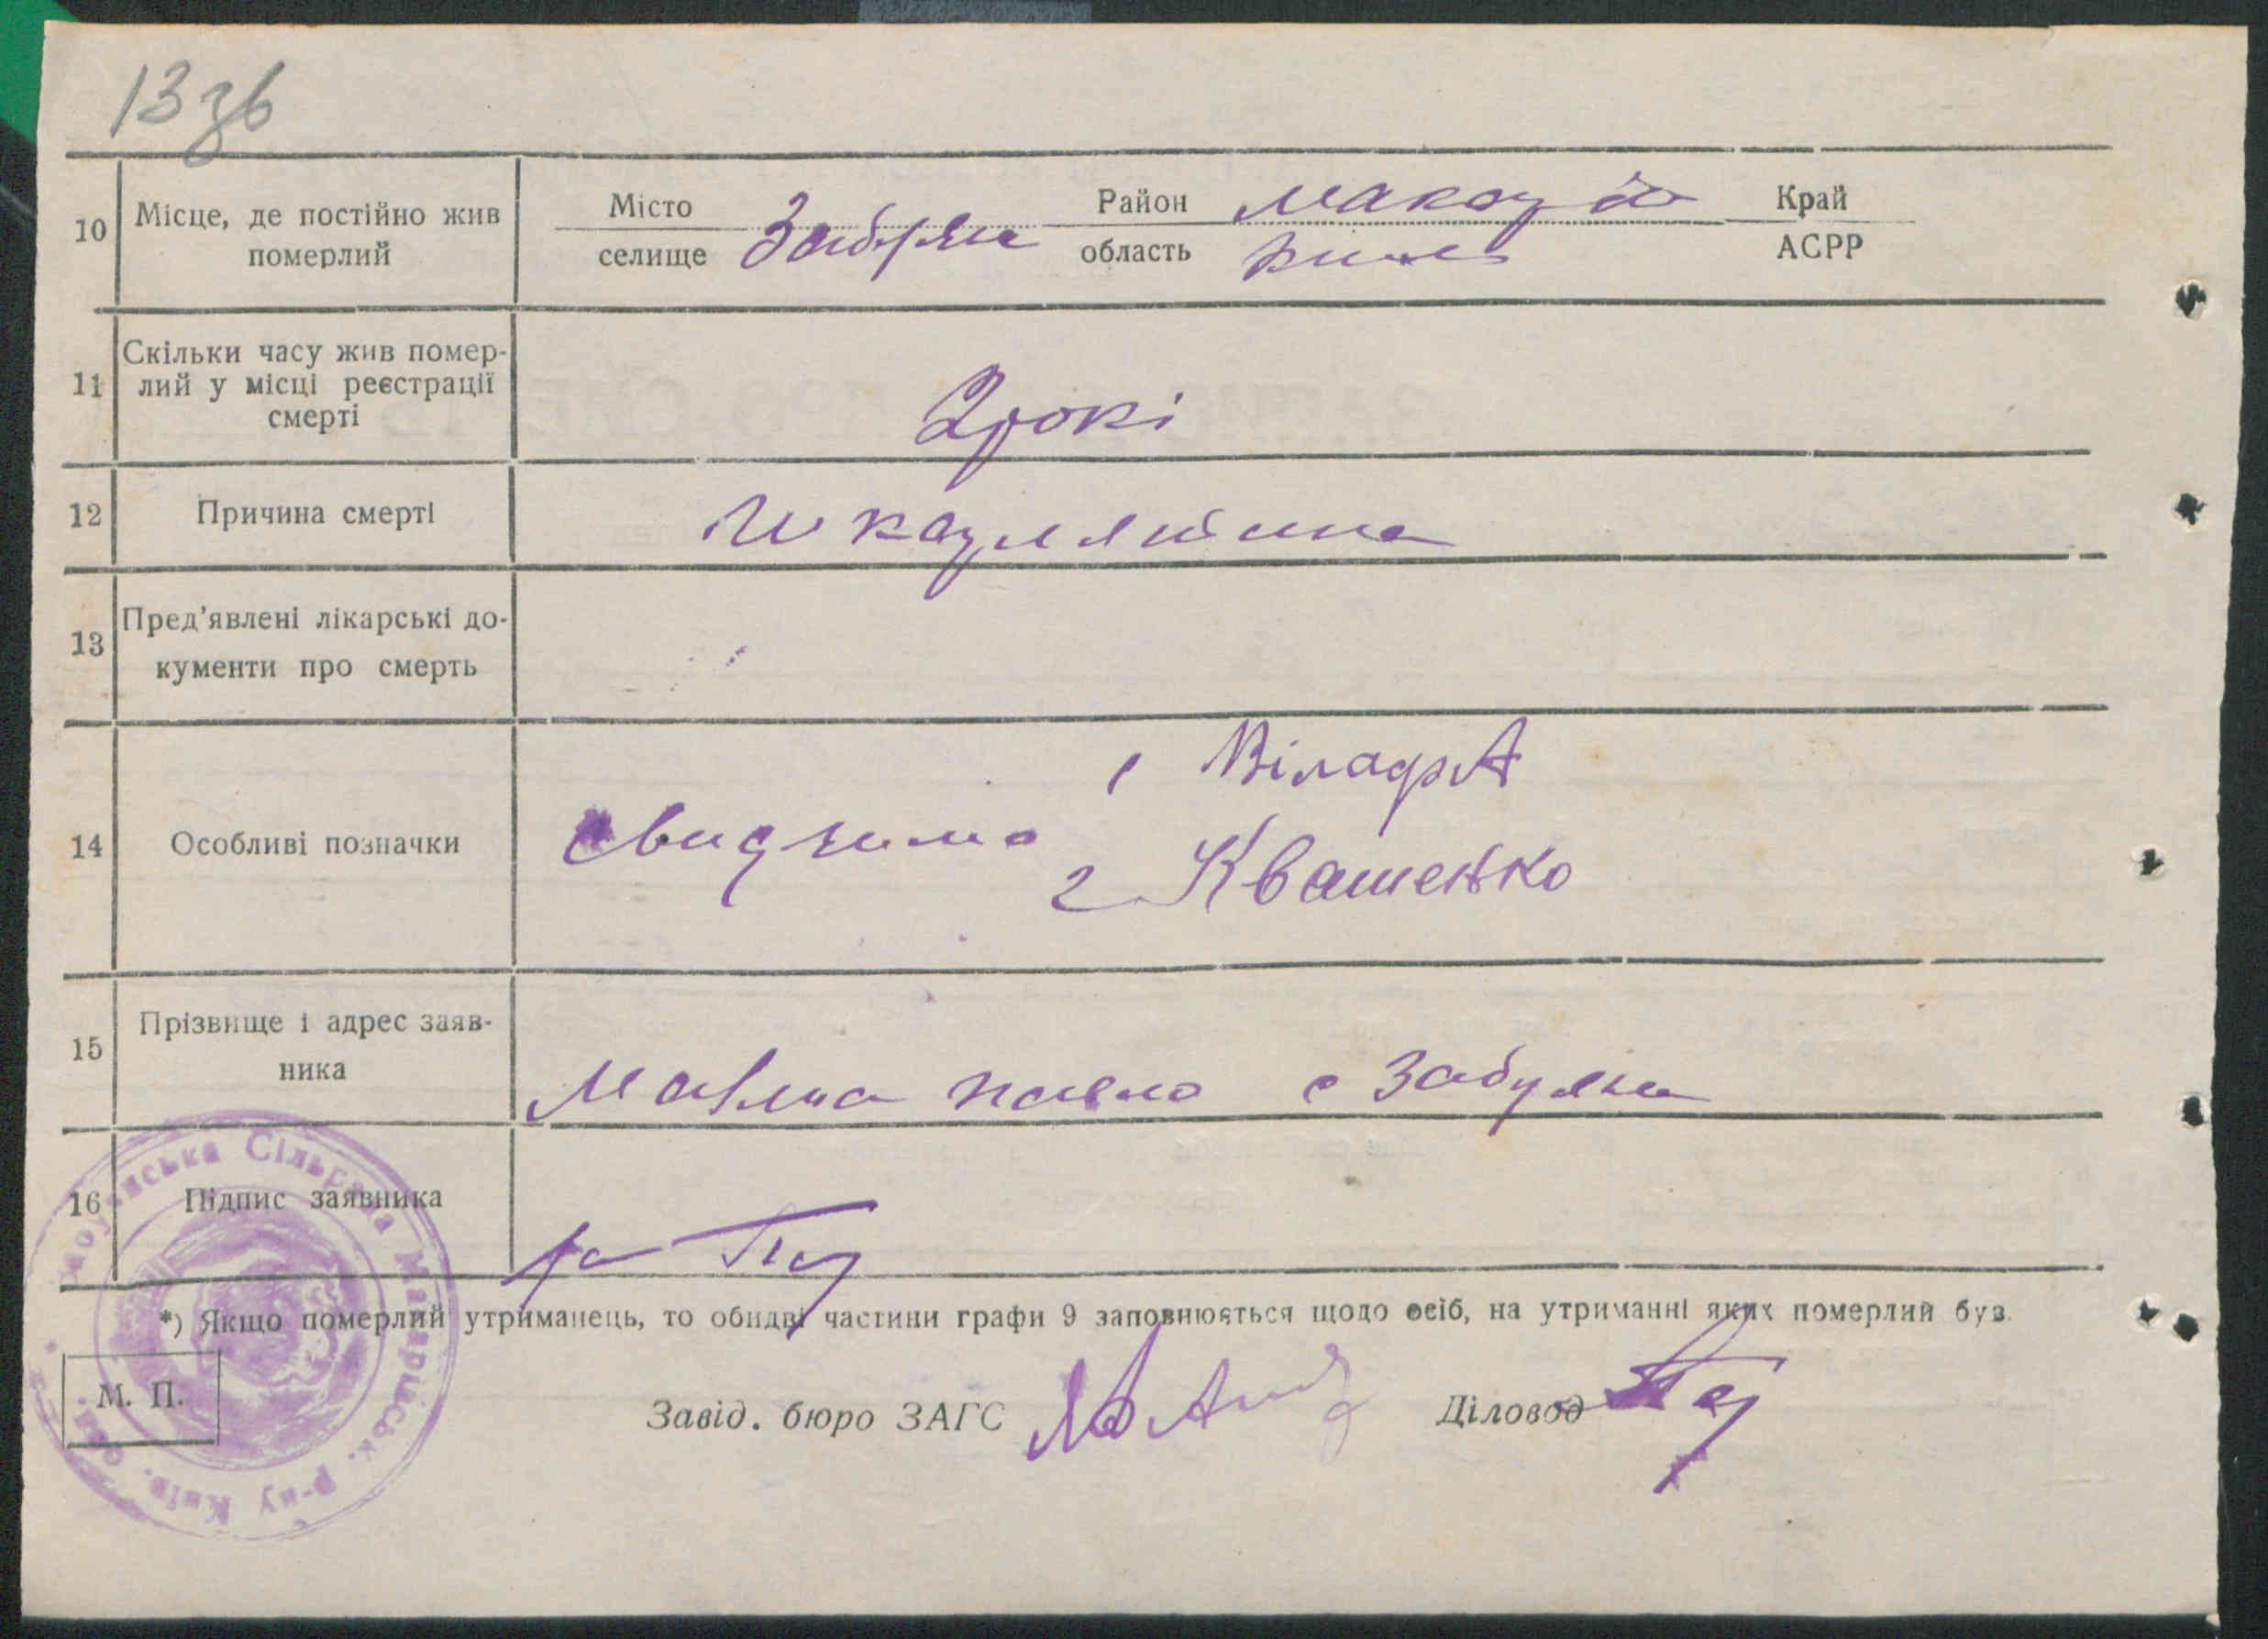 13 зв
10 Місце, де постійно жив померлий
Місто селище Забуяне Район Макарів область Київ Край АСРР
11 Скільки часу жив помер-
лий у місці реєстрації
смерті
2 рокі
12 Причина смерті
13 Пред'явлені лікарські до-
кументи про смерть
14 Особливі позначки
1
2 Квашенко
15 Прізвище і адрес заяв-
ника
Павло с Забуяне
16 Підпис заявника
*) Якщо померлий утриманець, то обидві частини графи 9 заповнюється щодо осіб, на утриманні яких померлий був.
М. П.
Завід. бюро ЗАГС
Діловод
Забуянська Сільрада Макарівськ. р-ну Київ. обл.